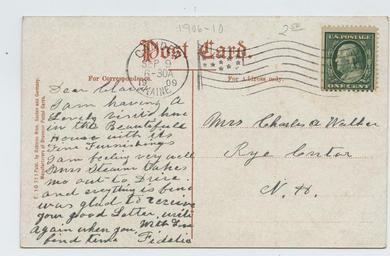 1906-10
Post Card
SEP 9
6-30A
09
MAINE
U.S. POSTAGE
ONE CENT
For Correspondence.
For Address only.
Dear Clara
I am having A
Lovely visit here
in the Beautiful
House with its
Fine Furnishings
I am feeling very well
Mrs Takes
me out to Drive.
and everything is fine
was glad to receive
your good Letter. write
again when you. With
kind Fidelia
Mrs Charles A Walker
Rye Center
N. H.